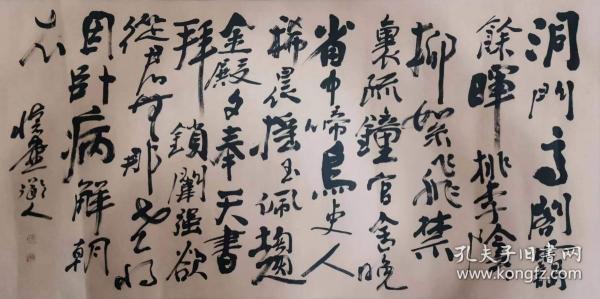 洞門高閣靄
餘暉桃李陰
柳絮飛禁
裏疏鐘官舍晚
省中啼鳥吏人
稀晨搖玉佩趨
金殿夕奉天書
拜鎖闈强欲
從君無那老將
因卧病解朝
衣
道人
孔夫子旧书网
www.kongfz.com